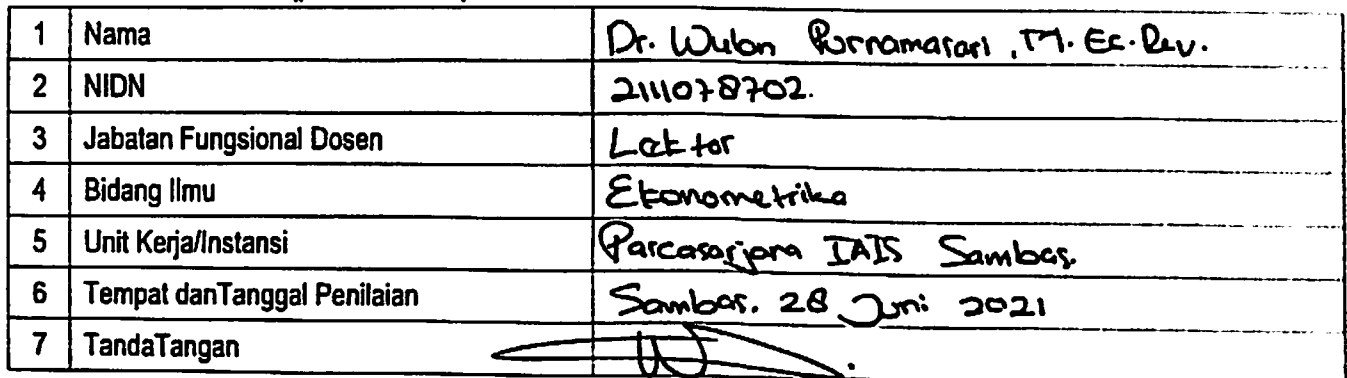 1 Nama Dr. Wulan Purnamasari, M. Ec. Dev.
2 NIDN 2111078702.
3 Jabatan Fungsional Dosen Lektor
4 Bidang Ilmu Ekonometrika
5 Unit Kerja/Instansi Pascasarjana IAIS Sambas.
6 Tempat danTanggal Penilaian Sambas. 28 Juni 2021
7 TandaTangan